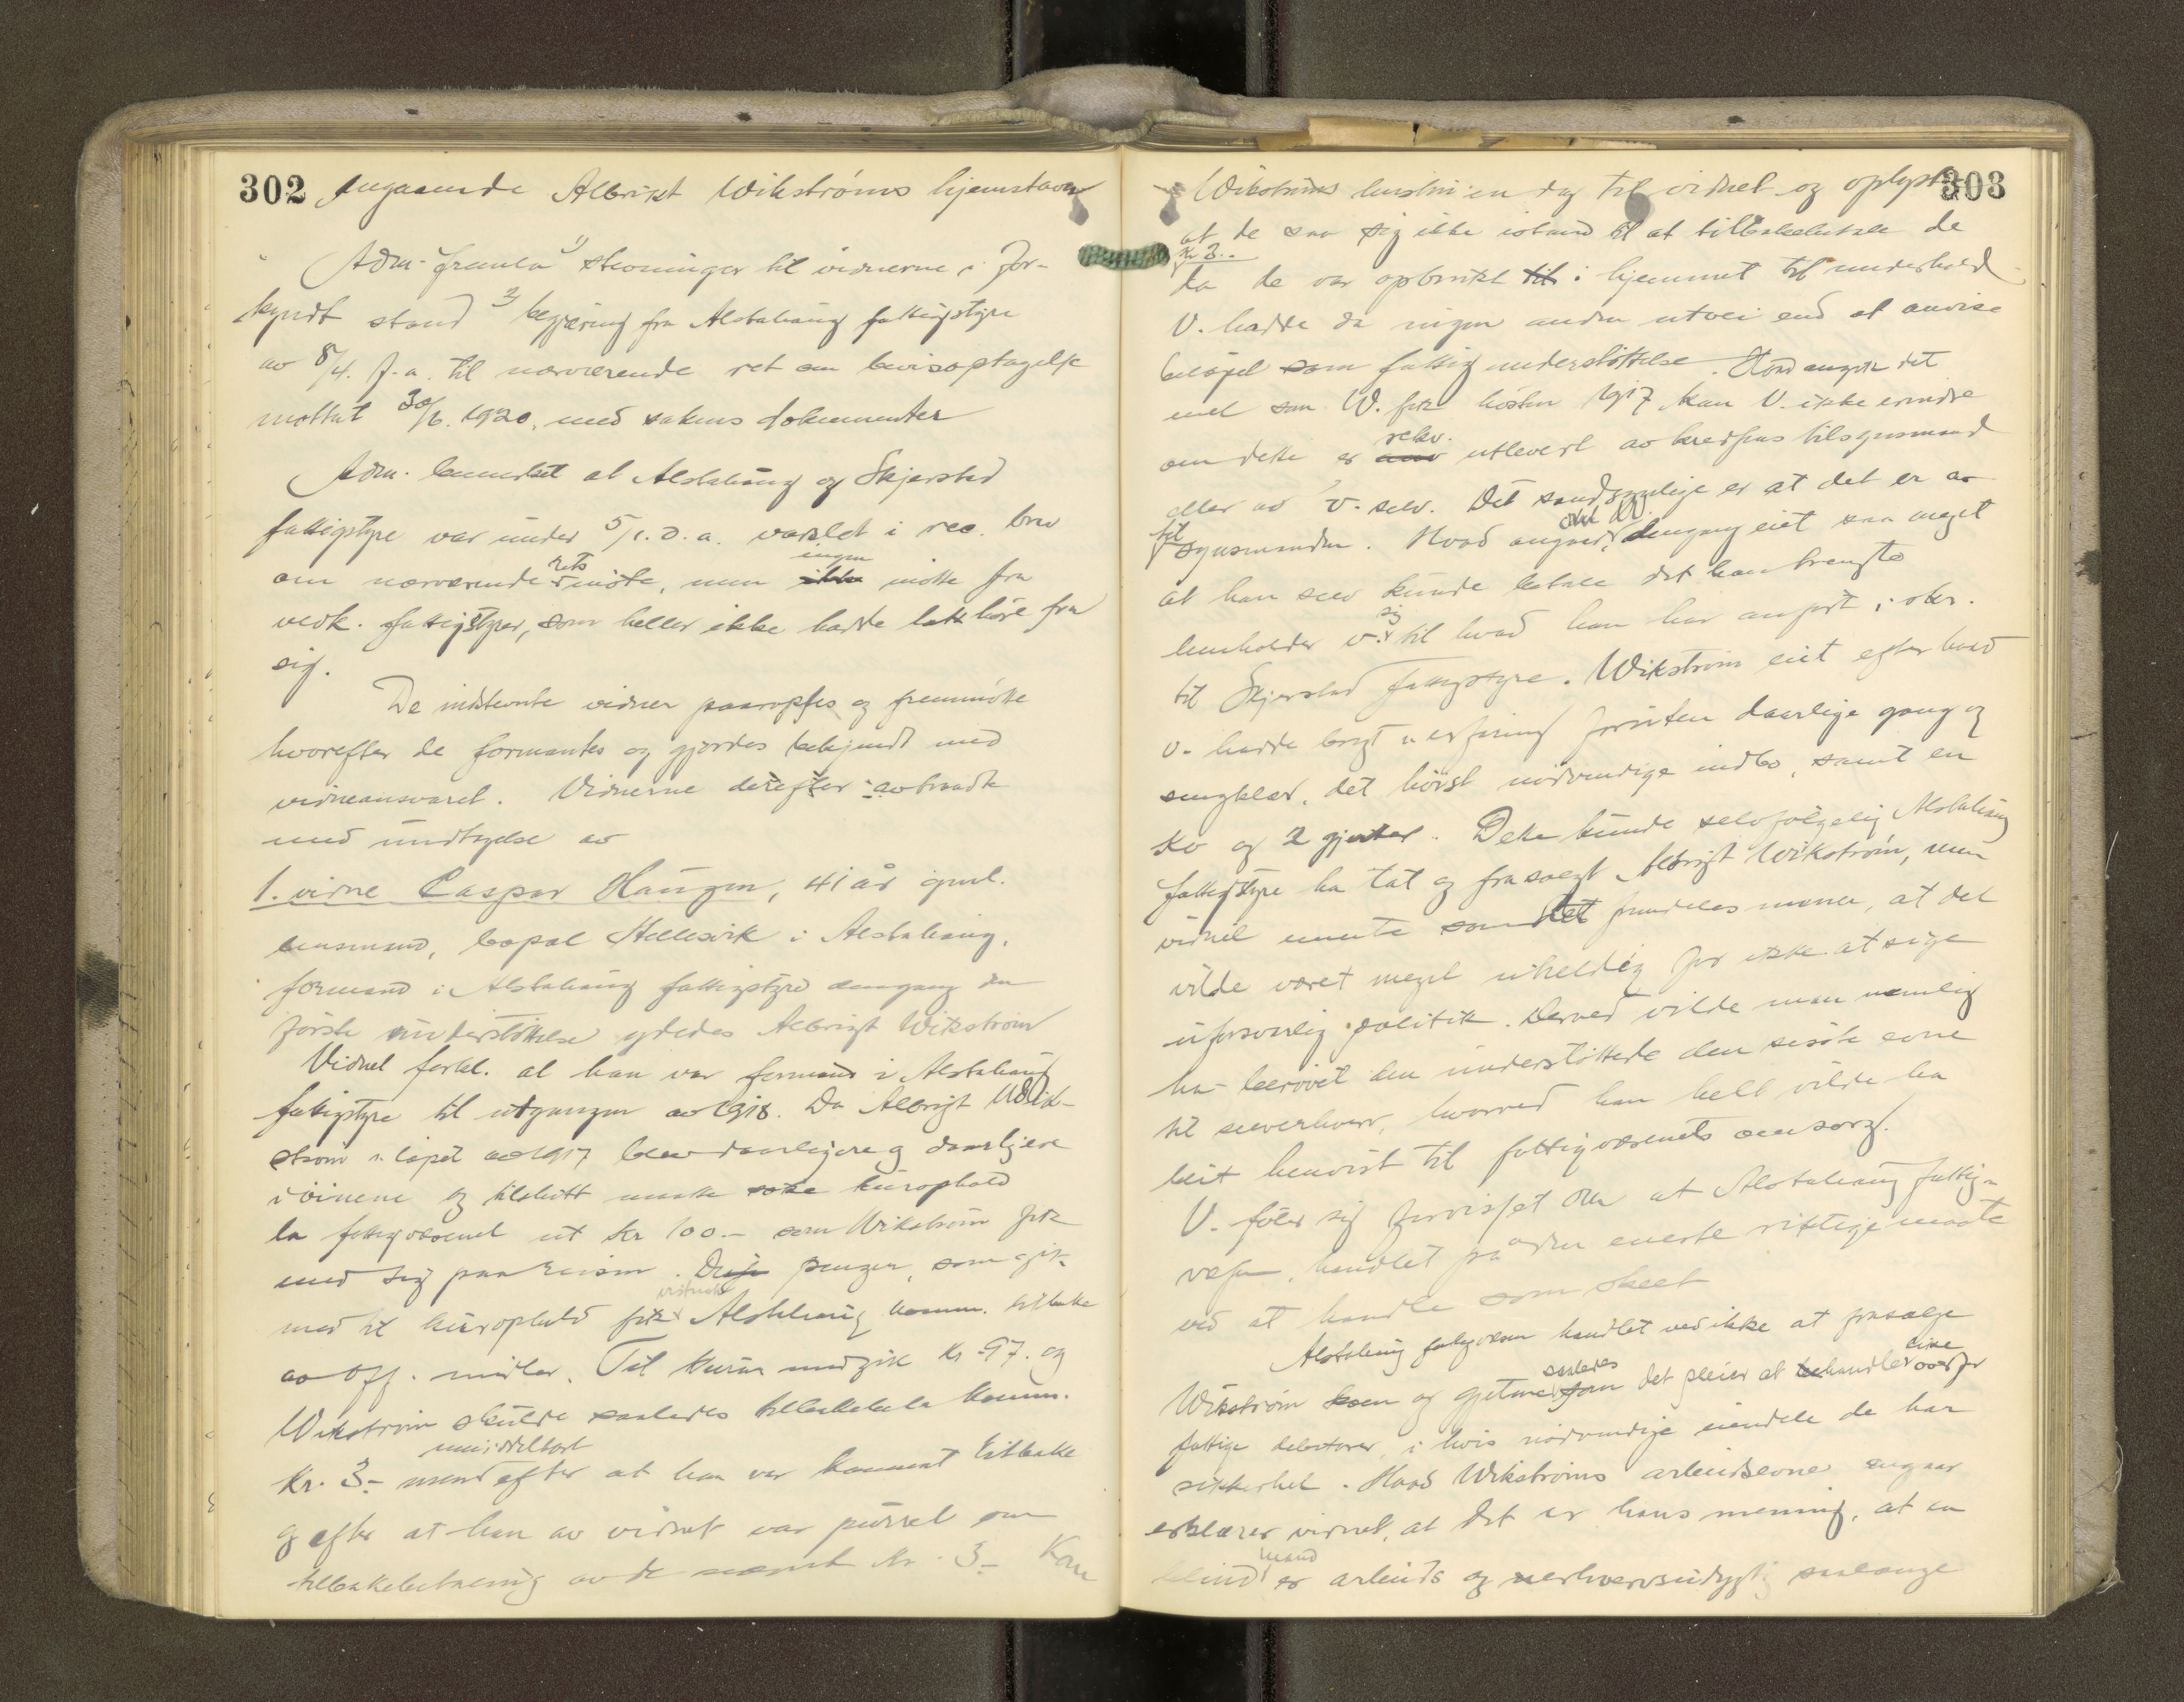 302 Angaaende Albrikt Wikströms hjemstavn
Adm. fremla 1) stevninger til vidnerne i for-
kyndt stand 2) begjæring fra Alstahaug fattigstyre
av 8/4. f.a. til nærværende ret om bevisoptagelse
mottat 30/6. 1920, med sakens dokumenter
Adm. bemerket at Alstahaug og Skjerstad
fattigstyre var under 5/1. d.a. varslet i rec. brev
om nærværende rets møte, men ikke ingen møtte fra
vedk. fattigstyrer, som heller ikke hadde latt høre fra
sig.
De indstevnte vidner paaroptes og fremmøtte
hvorefter de formantes og gjordes bekjendt med
vidneansvaret. Vidnerne derefter avtraadte
med undtagelse av
1. vidne Caspar Haugen, 41 år gml.
lensmand, bopæl Hellesvik i Alstahaug,
formand i Alstahaug fattigstyre dengang den
første understøttelse ydedes Albrigt Wikström
Vidnet forkl. at han var formand i Alstahaug
fattigstyre til utgangen av 1918. Da Albrigt Wik-
strøm i løpet av 1917 blev daarligere og daarligere
i øinene og tilslutt maatte søke kurophold
la fattigvæsenet ut kr 100.- som Wikstrøm fik
med sig paa reisen. Disse penger, som gik
med til kurophold fik Alstahaug komm. tilbake
av off. midler. Til kuren medgik kr 97. og
Wikstrøm skulde saaledes tilbakebetale komm.
Kr. 3.- umiddelbart efter at han var kommet tilbake
og efter at han av vidnet var purret om
tilbakebetaling av de nævnte kr. 3.- Kom
303
Wikströms hustru en dag til vidnet og oplyste
at de saa sig ikke istand til at tilbakebetale de
kr 3..
da de var opbrukt til i hjemmet til underhold
V. hadde da ingen anden utvei end at anvise
beløpet som fattigunderstøttelse. Hvad angaar det
mel som W. fik høsten 1917 kan V. ikke erindre
om dette er rekv. utlevert av kredsens tilsynsmand
eller av V. selv. Det sandsynlige er at det er av
tilsynsmanden. Hvad angaar, om W. dengang eiet saa meget
at han selv kunde betale det han trengte
henholder V. sig til hvad han har anført i skr.
til Skjerstad fattigstyre. Wikstrøm eiet efter hvad
V. hadde bragt i erfaring foruten daarlige gang og
sengklær, det høist nødvendige indbo, samt en
ko og 2 gjeter. Dette kunde selvfølgelig Alstahaug
fattigstyre ha tat og frasolgt Albrigt Wikstrøm, men
vidnet mente som det fremdeles mener, at det
vilde været meget uheldig for ikke at sige
uforsvarlig politik. Derved vilde man nemlig
ha berøvet den understøttede den sidste evne
til selverhverv, hvorved han helt vilde ha
blit henvist til fattigvæsenets omsorg.
V. føler sig forvisset om at Alstahaug fattig-
væsen, handlet på den eneste riktige maate
ved at handle som skeet
Alstahaug fattigvæsen handlet ved ikke at frasælge
Wikstrøm koen og gjetene saaledes som det pleier at behandle sine overfor
fattige debitorer, i hvis nødvendige eiendele de har
sikkerhet. Hvad Wikströms arbeidsevne angaar
erklærer vidnet, at det er hans mening, at en
blind mand er arbeids og erhvervsudygtig saalænge